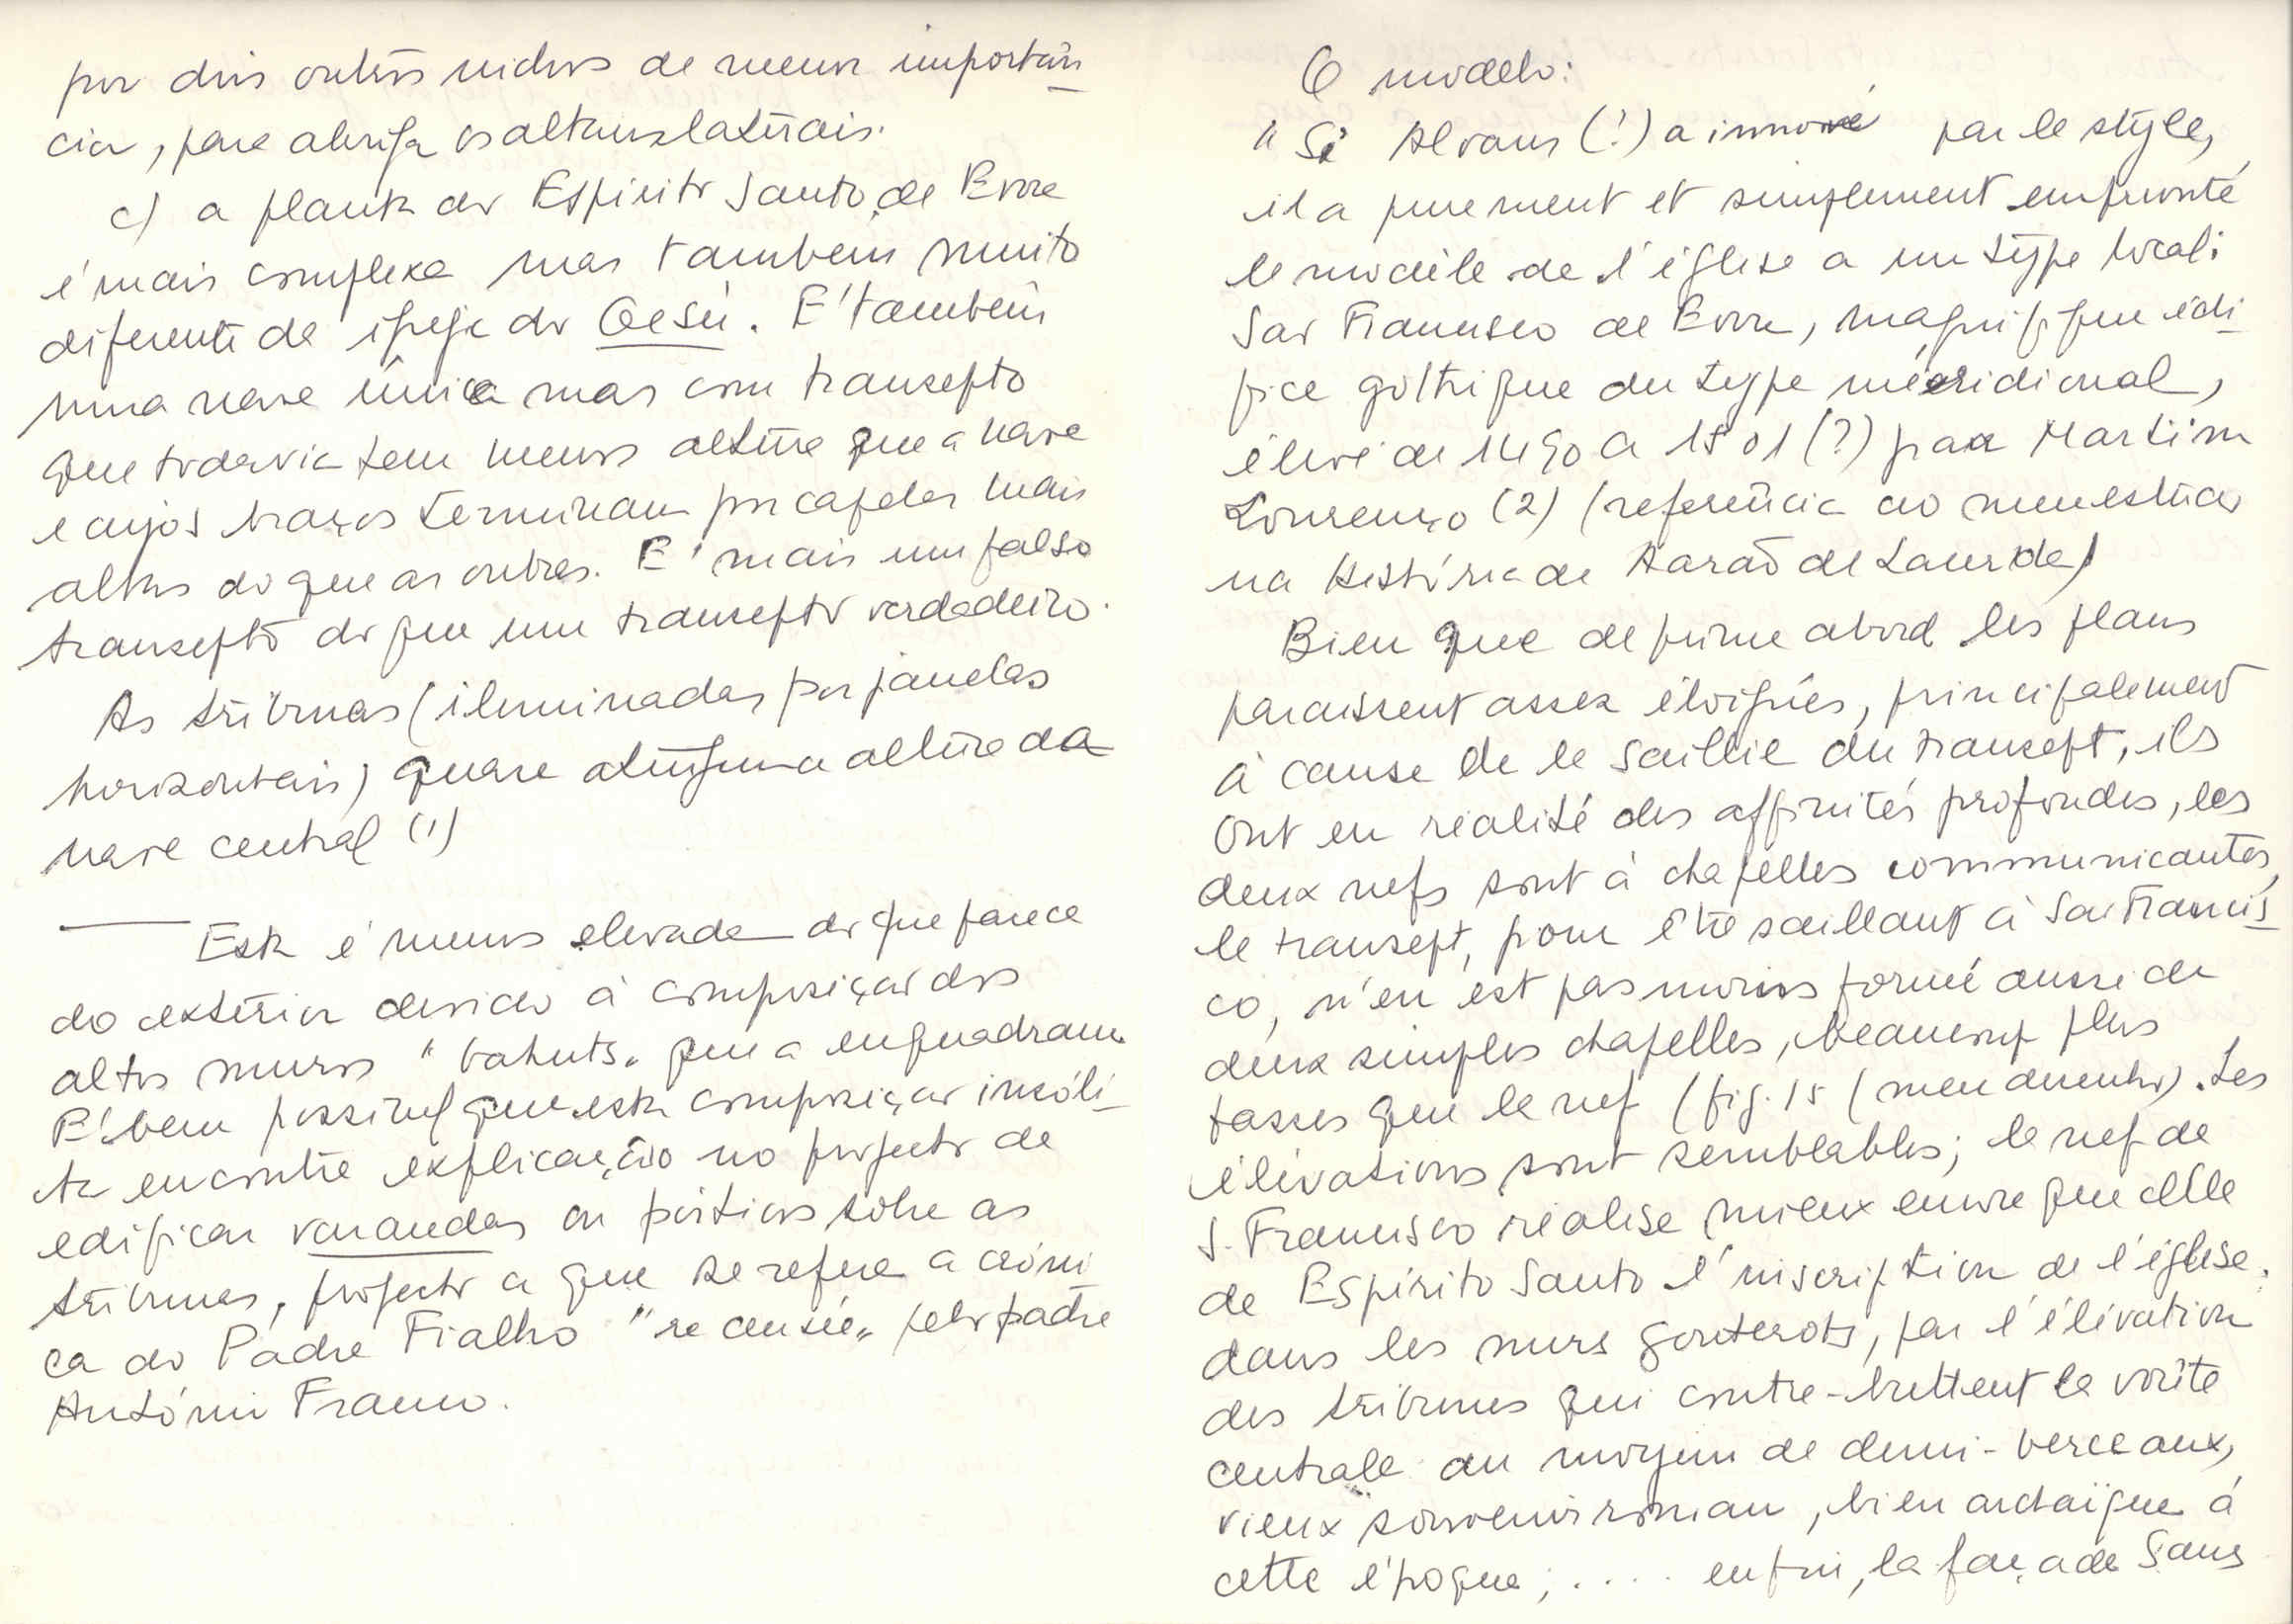 por dois outros nichos de menor importân
cia, para abrigar os altares laterais.
c) a planta do Espirito Santo, de Evora
é mais complexa mas tambem muito
diferente da igreja do Gesú. E' também
uma nave única mas com transepto
que todavia tem menos altura que a nave
e cujos braços terminam por capelas mais
altas do que as outras. E' mais um falso
transepto do que um transepto verdadeiro.
As tribunas (iluminadas por janelas
horizontais) quase atingem a altura da
nave central (1)
Esta é menos elevada do que parece
do exterior devido à composição dos
altos muros "bahuts" que a enquadram.
E' bem possivel que esta composição insóli-
ta encontre explicação no projecto de
edificar varandas ou pórticos sobre as
tribunas, projecto a que se refere a cróni
ca do Padre Fialho "recensée" pelo padre
António Franco.
O modelo:
"Si Alvares (!) a innové par le style,
il a purement et simplement emprunté
le modèle de l'église a un type local:
Sao Francisco de Evora, magnifique édi-
fice gothique du type méridional,
élevé de 1490 a 1501 (?) par Martim
Lourenço (2) (referência ao menestúer
na História de Aarão de Lacerda)
Bien que de prime abord les plans
paraissent assez éloignés, principalement
à cause de la saillie du transept, ils
ont en réalité des affinités profondes, les
deux nefs sont à chapelles communicantes,
le transept, pour être saillant à Sao Francis-
co, n'en est pas moins formé aussi de
deux simples chapelles, beaucoup plus
basses que la nef (fig. 15 (meu desenho). Les
élévations sont semblables; la nef de
S. Francisco réalise mieux encore que celle
de Espírito Santo l'inscription de l'église
dans les murs gouterots, par l'élévation
des tribunes qui contre-buttent la voûte
centrale au moyen de demi-berceaux,
vieux souvenir roman, bien archaïque à
cette époque; .... enfin, la façade sans